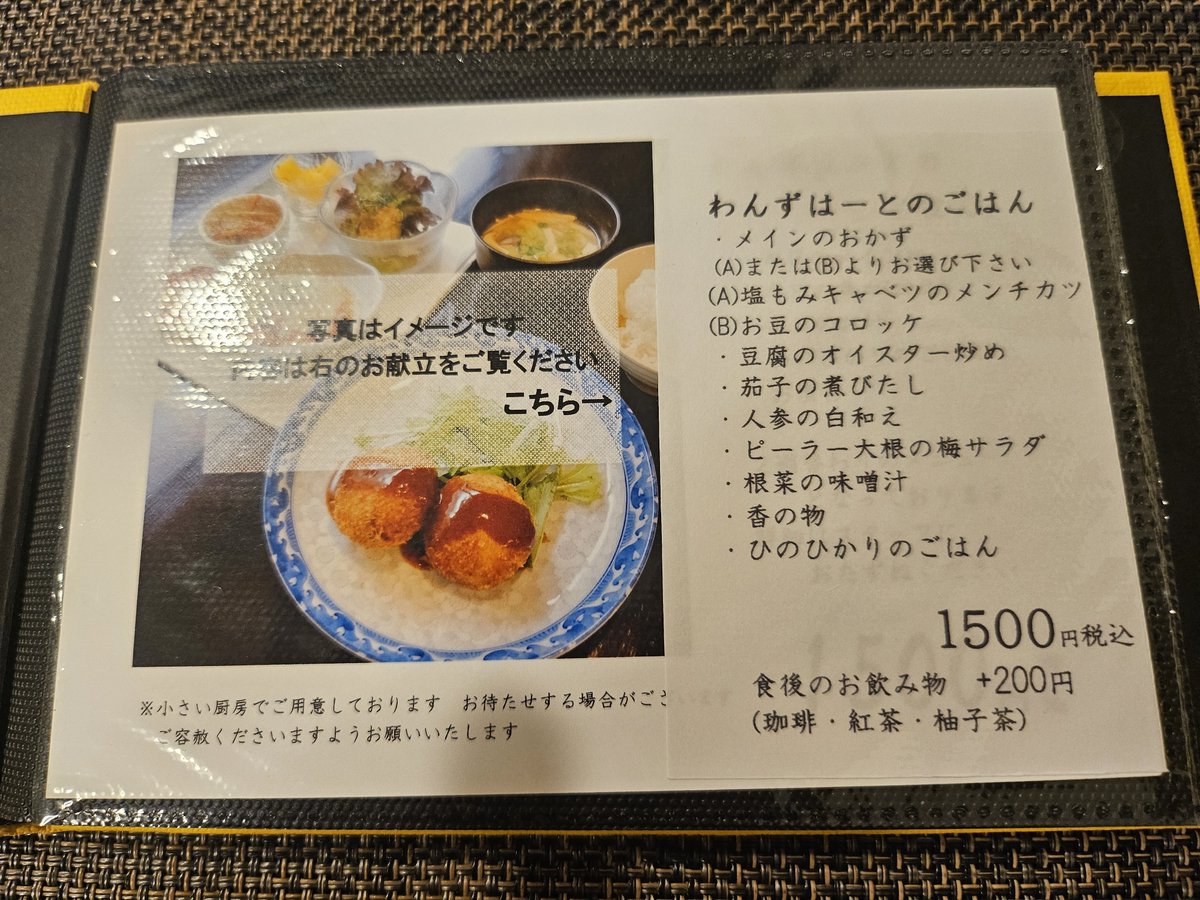 写真はイメージです
内容は右のお献立をご覧ください
こちら→
※小さい厨房でご用意しております お待たせする場合がござ
ご容赦くださいますようお願いいたします
わんずはーとのごはん
・メインのおかず
(A)または(B)よりお選び下さい
(A)塩もみキャベツのメンチカツ
(B)お豆のコロッケ
・豆腐のオイスター炒め
・茄子の煮びたし
・人参の白和え
・ピーラー大根の梅サラダ
・根菜の味噌汁
・香の物
・ひのひかりのごはん
1500円税込
食後のお飲み物 +200円
(珈琲・紅茶・柚子茶)